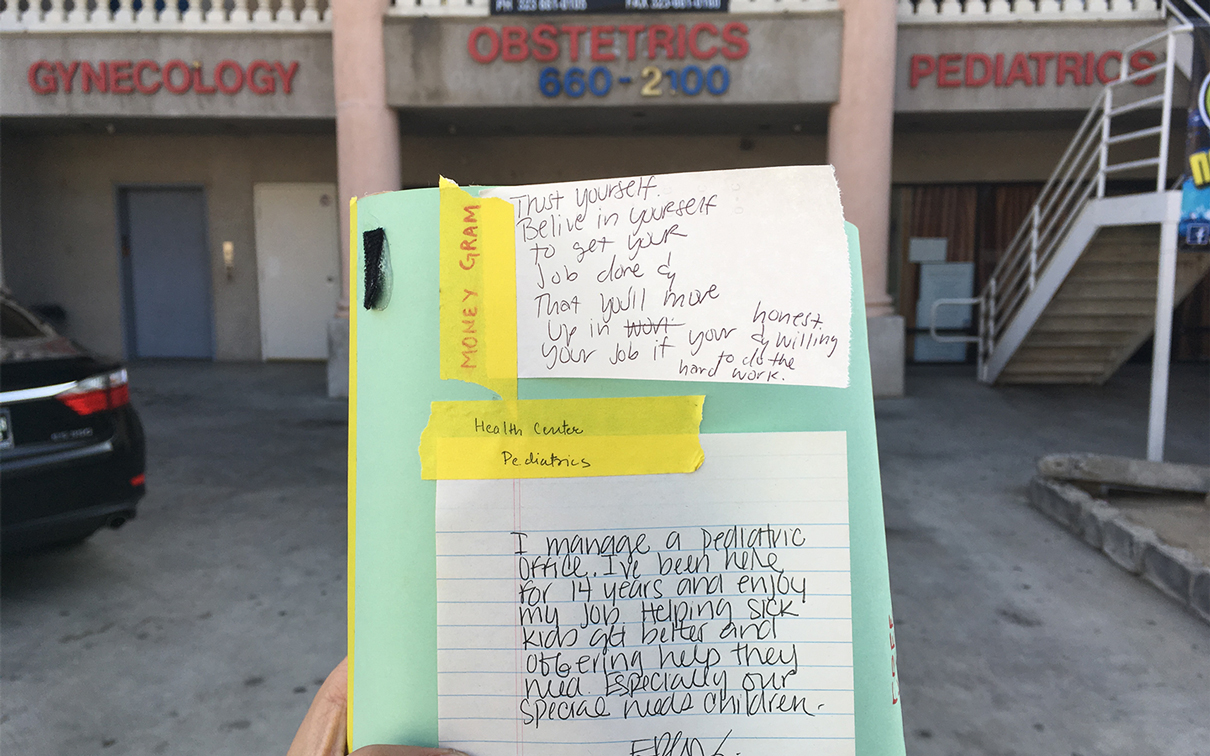 PH 323-661-0105 FAX 323-661-0100
GYNECOLOGY
OBSTETRICS
660-2100
PEDIATRICS
MONEY GRAM
Trust yourself.
Belive in yourself
to get your
Job done &
That you'll move
up in work your honest
your Job if & willing
to do the
hard work.
Health Center
Pediatrics
I manage a pediatric
office. I've been here
for 14 years and enjoy
my job. Helping sick
kids get better and
offering help they
need. Especially our
special needs children.
FREE